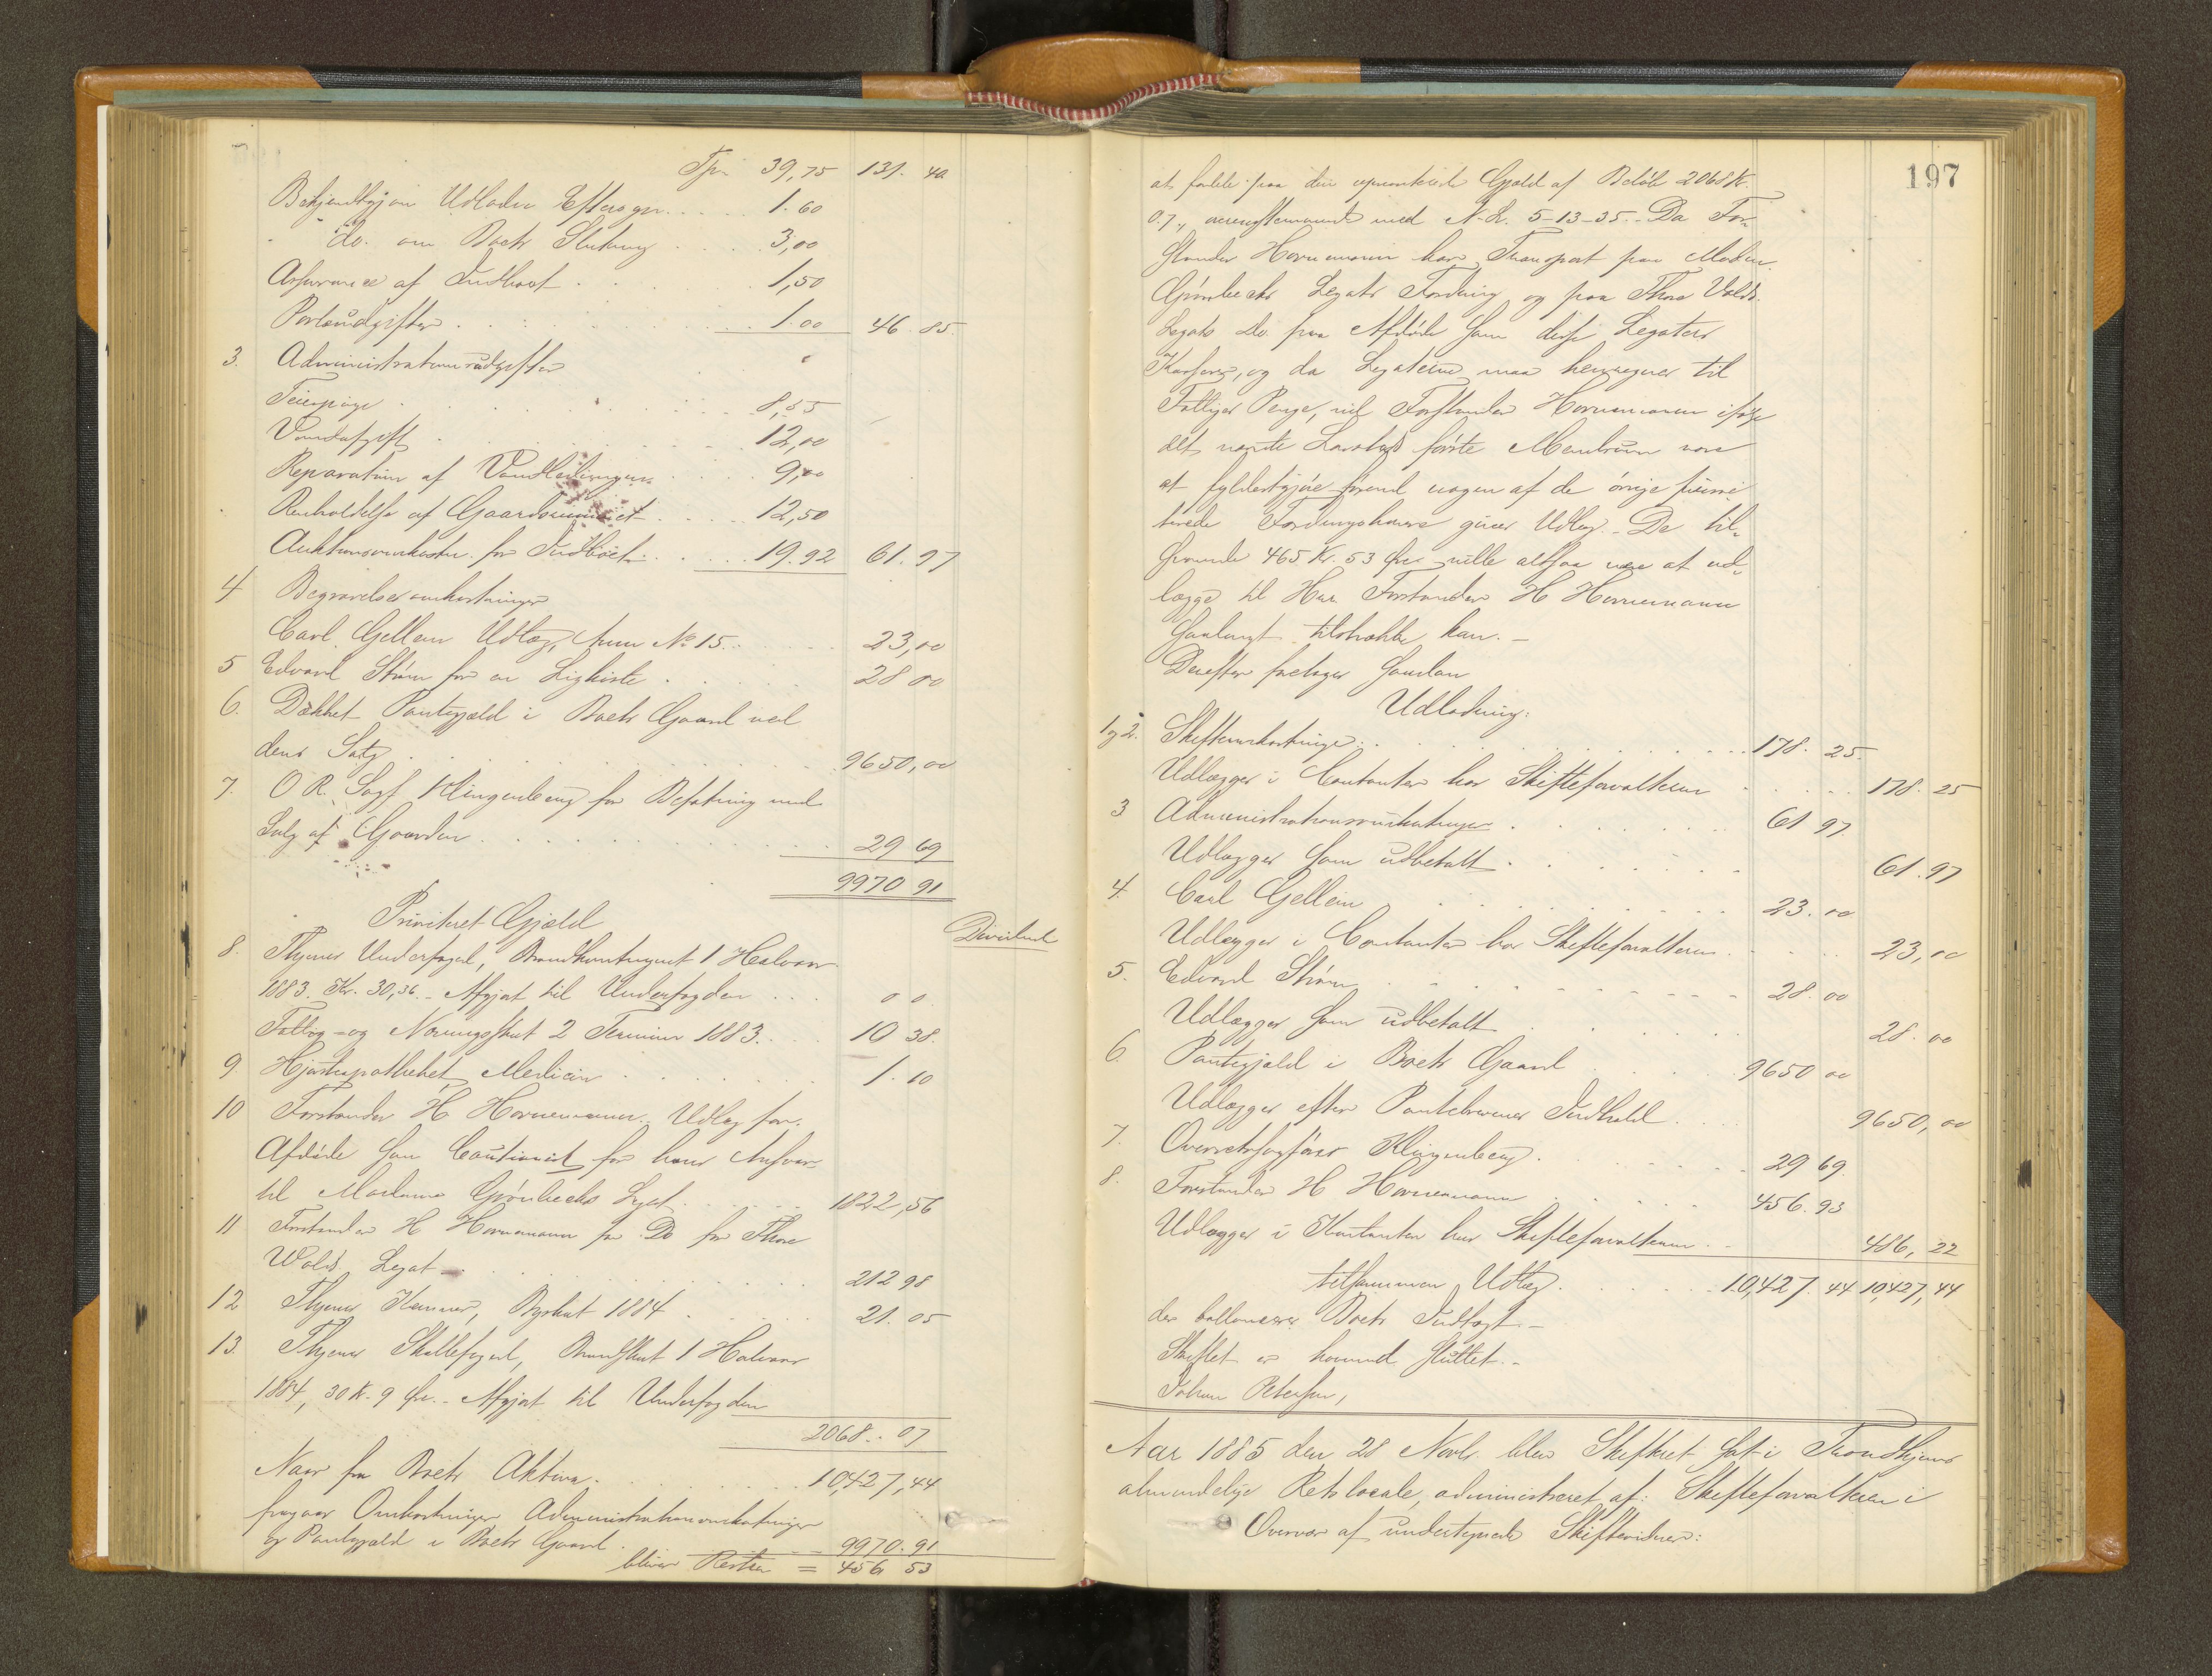 Tpr. 39,75 131. 40
Bekjendtgjør. Udlodn. Eftersyn 1.60
do. om Boets Slutning 3,00
Assurance af Indboet 1,50
Portoudgifter 1.00 46.85
3. Administrationsudgifter
Feierpenge 8,55
Vandafgift 12,00
Reparation af Vandledningen 9,00
Renholdelse af Gaardsrummet 12,50
Auktionsomkostn. for Indboet 19.92 61.97
4 Begravelsesomkostninger
Carl Gellein Udlæg, Anm No 15. 23,00
5 Edvard Strøm for en Ligkiste 28 00
6. Dækket Pantegjæld i Boets Gaard ved
dens Salg 9650,00
7. O. R. Sagf. Klingenberg for Befatning med
Salg af Gaarden 29 69
9970 91
Prioriteret Gjæld
Dividende
8. Thjems Underfoged, Brandkontingent 1 Halvaar
1883. Kr. 30,36. Afgjort til Underfogden 0 0
Fattig- og Næringsskat 2 Termin 1883. 10 38.
9 Hjorteapotheket, Medicin 1.10
10 Forstander H. Hornemann. Udlæg for
Afdøde som Cautionist for hans Ansvar
til Madame Grønbechs Legat 1822,56
11 Forstander H Hornemann for Do for Thore
Wolds Legat 212 98
12 Thjems Kemner, Byskat 1884 21.05
13. Thjems Skattefoged, Brandskat 1 Halvaar
1884, 30 K. 9 Øre. Afgjort til Underfogden
2068.07
Naar fra Boets Aktiva 10,427,44
fragaar Omkostninger Administrationsomkostninger
og Pantegjæld i Boets Gaard 9970.91
bliver Resten = 456 53
197
at fordele paa den uprioriterede Gjæld af Beløb 2068 K.
07., overensstemmende med N. L. 5-13-35. Da For-
stander Hornemann har Transport paa Madm.
Grønbechs Legats Fordring og paa Thore Wolds
Legats Do. paa Afdøde som disse Legaters
Kasserer, og da Legaterne maa henregnes til
Fattiges Penge, vil Forstander Hornemann ifølge
det nævnte Lovbuds første Membrum være
at fyldestgjøre førend nogen af de øvrige priori-
terede Fordringshavere giver Udlæg. De til-
overs 465 Kr. 53 Øre vilde altsaa være at ud-
lægge til Herr Forstander H Hornemann
saalangt tilstrække kan.
Derefter foretages saadan
Udlodning:
1 og 2. Skifteomkostninger 178. 25.
Udlægges i Contanter hos Skifteforvalteren 178. 25
3 Administrationsomkostninger 61 97.
Udlægges som udbetalt 61.97
4. Carl Gellein 23.00
Udlægges i Contanter hos Skifteforvalteren 23,00
5. Edvard Strøm 28.00
Udlægges som udbetalt 28.00
6. Pantegjæld i Boets Gaard 9650 00
Udlægges efter Pantebrevenes Indhold 9650,00
7. Overretssagfører Klingenberg 29 69.
8. Forstander H Hornemann 456.93
Udlægges i Kontanter hos Skifteforvalteren 486, 22
tilsammen Udlæg 10,427.44 10,427,44
der ballancerer Boets Indtægt.
Skiftet er hermed sluttet.
Johan Petersen,
Aar 1885 den 28 Novbr. blev Skifteret sat i Trondhjems
almindelige Retslocale, administreret af Skifteforvalteren i
Overvær af undertegnede Skiftevidner: